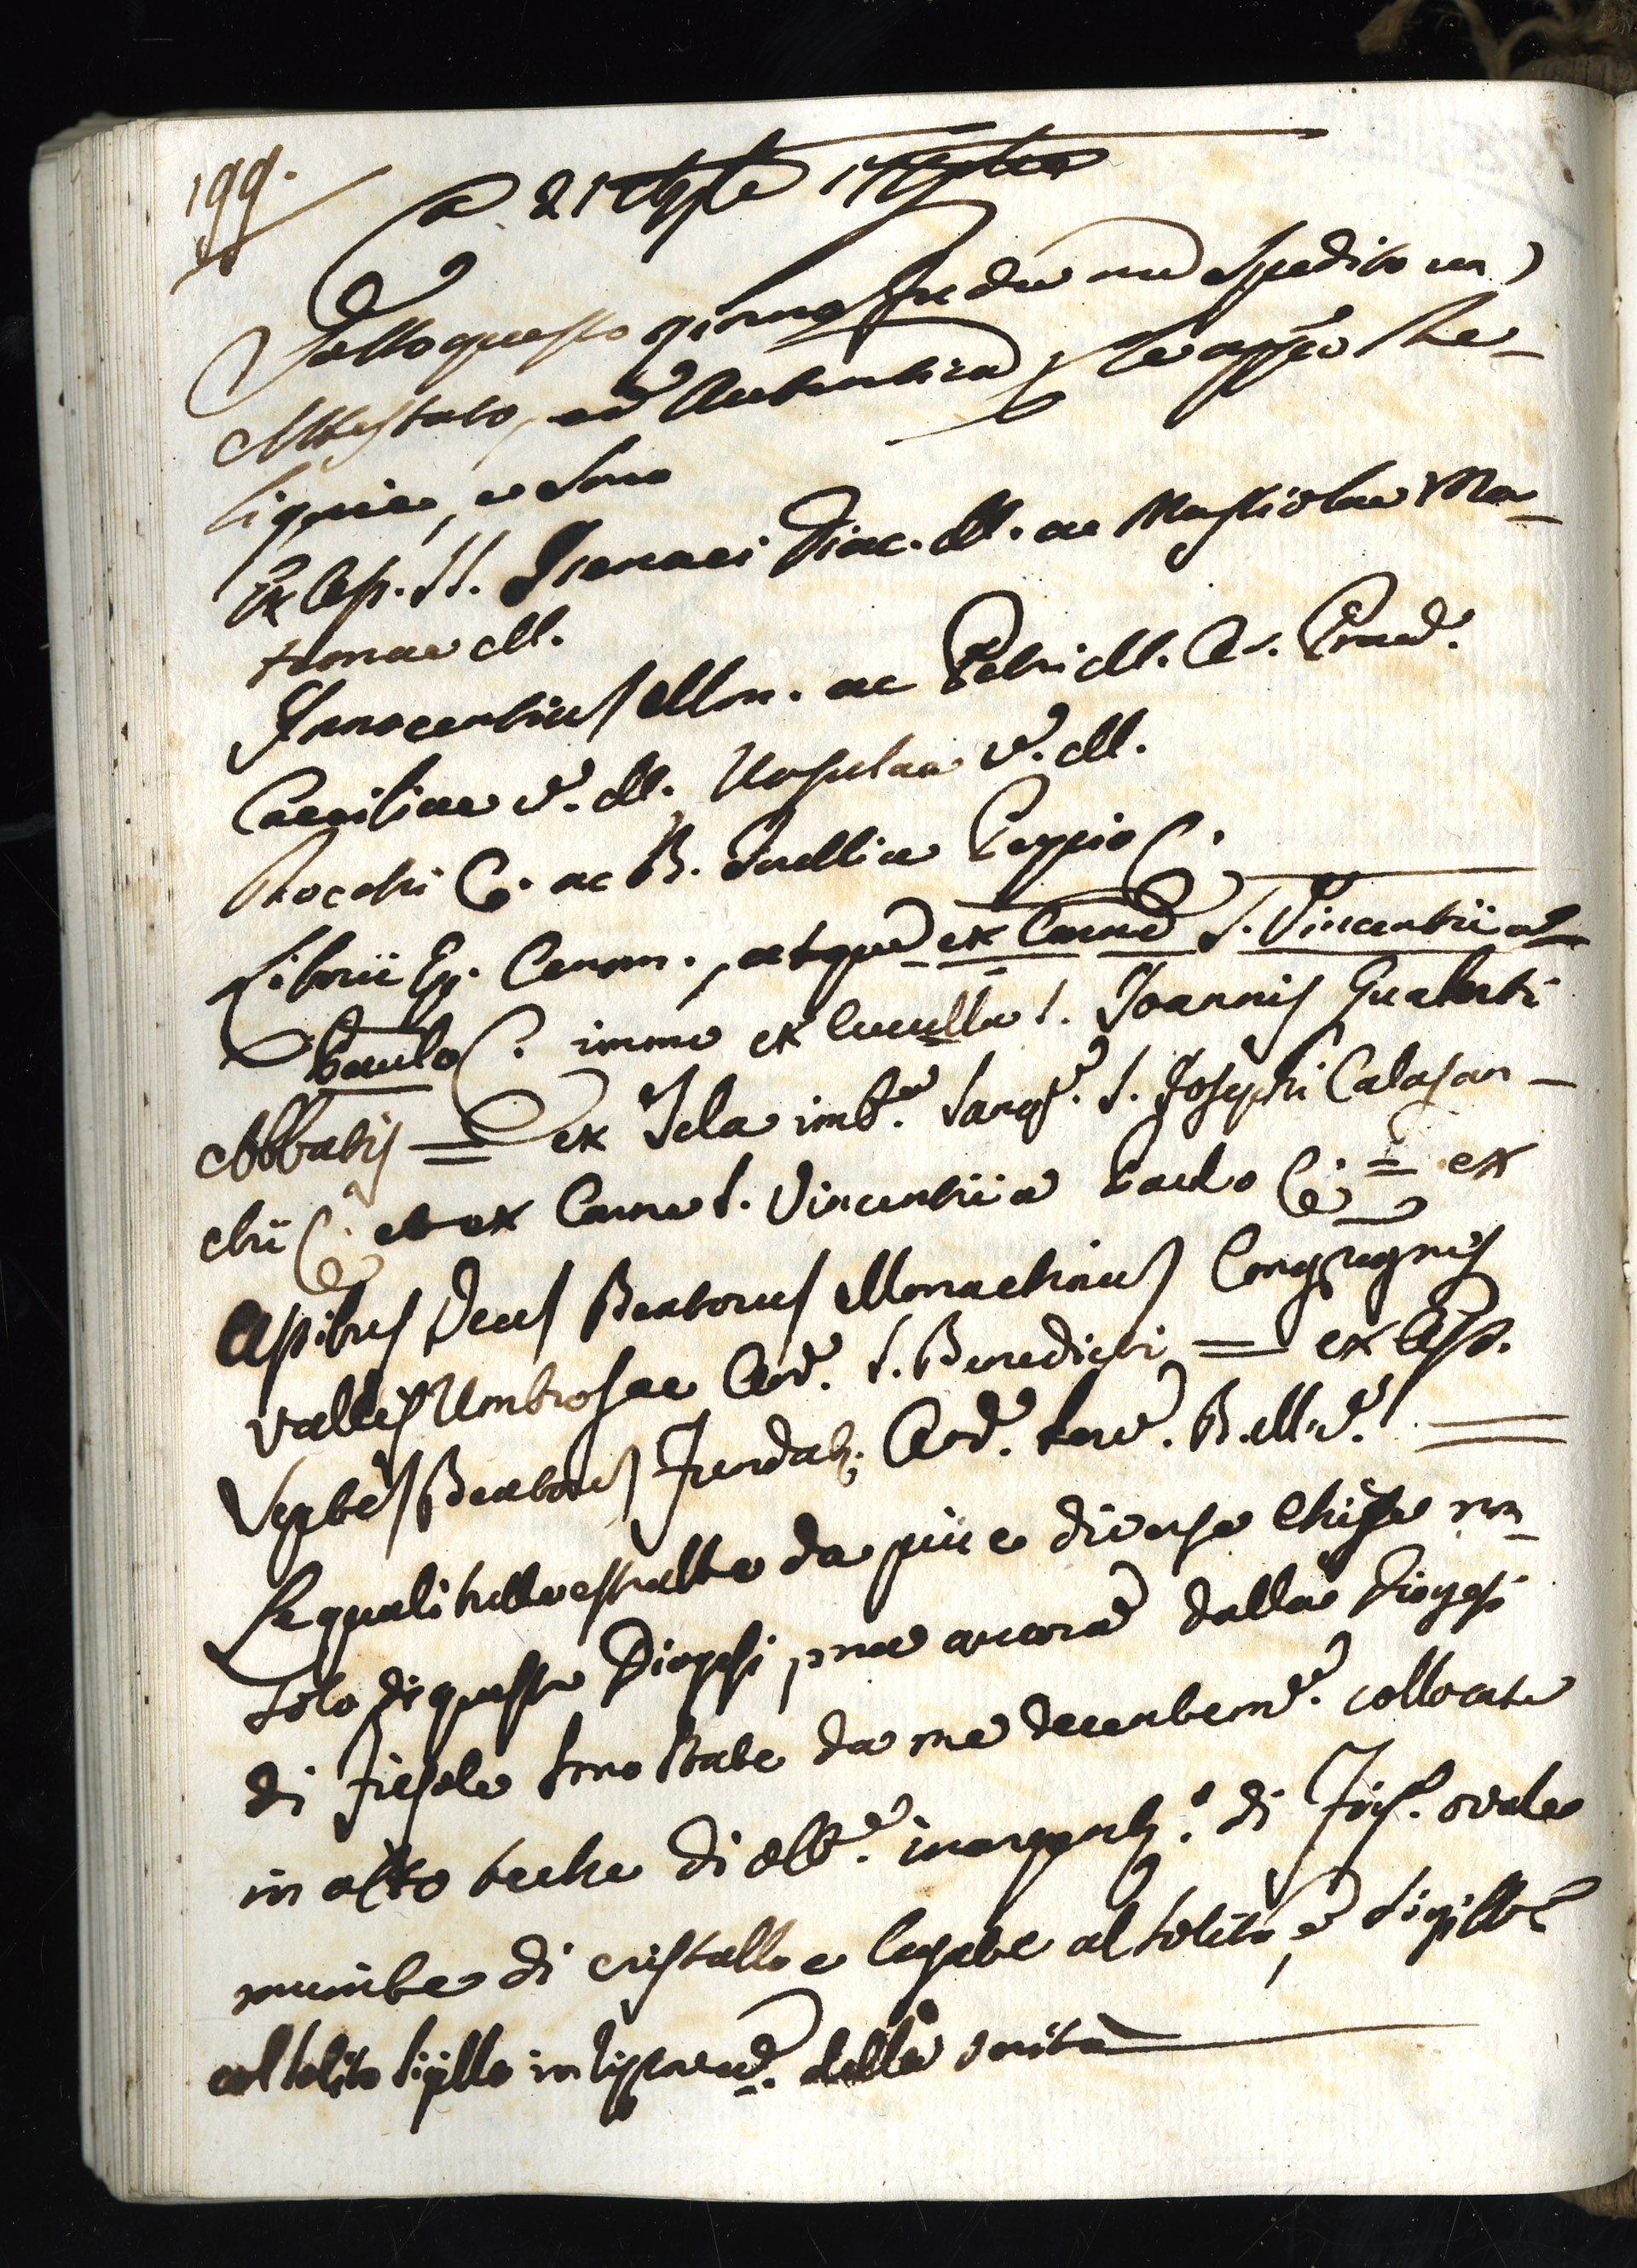 199.
a 21
Sotto questo giorno fu da me spedito un
Attestato, ed Autentica p le appo Re-
liquie, e sono
Ex Ossi. SS. Irenaei Diac. M. ac Mustiolae Ma-
tronae M.
Innocentius Mon. ac Petri M. Or. Praed.
Caeciliae V. M. Ursulae V. M.
Rocchi C. ac B. Torelli a Poppio C.
Liborii Ep. Cenom., atque ex Carne S. Vincentii a
Paulo C. immo ex Cuculla S. Joannis Gualberti
Abbatis = ex Tela imbe. Sange. S. Josephi Calasan-
ctii C. et ex Carne S. Vincentii a Paulo C. = ex
Ossibus Beatorus Monachius Congregnis
Vallis Umbrosae Ord. S. Benedicti = ex Oss.
Septe Beatorus Fundats. Ord. Serv. B. M. V. =
Le quali tutte estratte da più e diverse Chiese non
solo di questa Diogesi, ma ancora dalla Diogesi
di Fiesole sono state da me decenteme. collocate
in otto teche di otte. inargents. di Fig. ovale
munite di cristallo e legate al solito, e sigilte
col solito sigillo in cera della solita